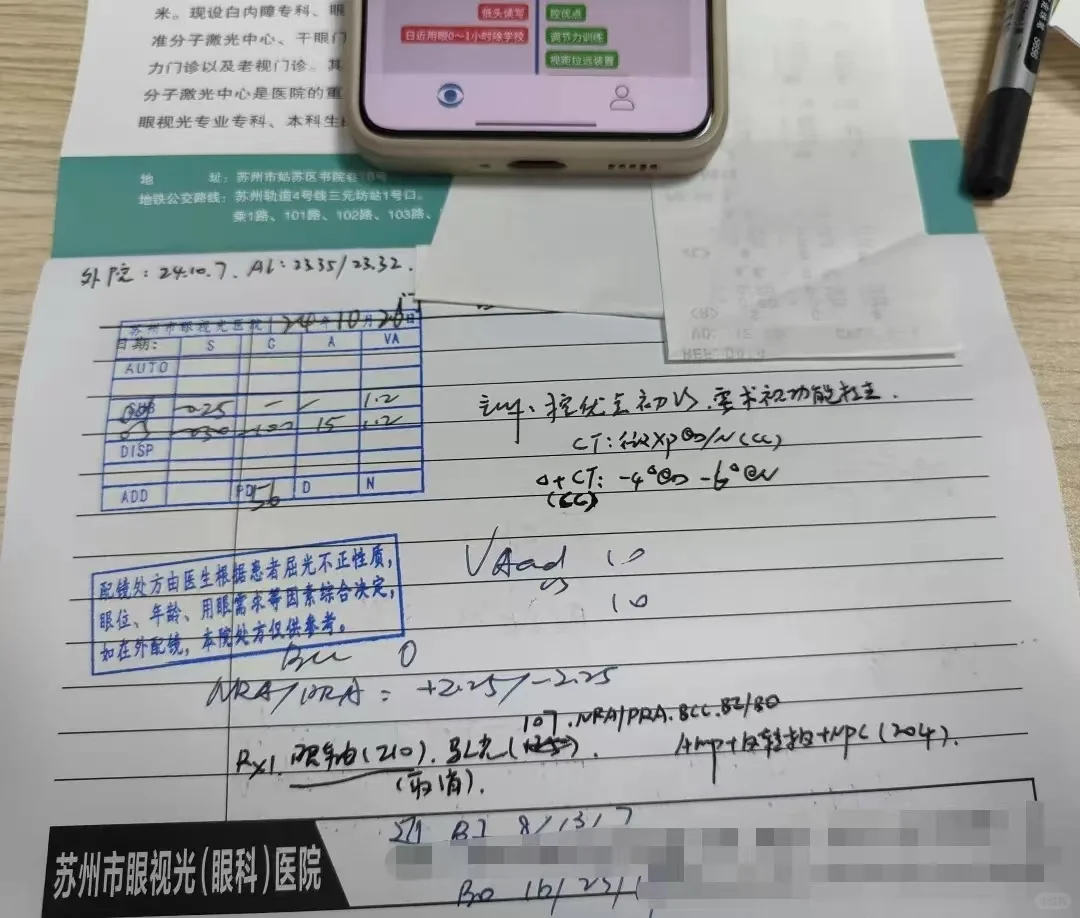 米。现设白内障专科、眼
准分子激光中心、干眼门
力门诊以及老视门诊。其
分子激光中心是医院的重
眼视光专业专科、本科生
低头读写
日近用眼0～1小时除学校
控优点
调节力训练
视距拉远装置
地 址：苏州市姑苏区书院巷18号
地铁公交路线：苏州轨道4号线三元坊站1号口。
乘1路、101路、102路、103路、
外院：24.10.7. AL：23.35/23.32.
苏州市眼视光医院 24年10月26日
日期： S C A VA
AUTO
-0.25 — 1.2
15 1.2
DISP
ADD PD56 D N
要求视功能检查.
CT:
△+CT: -4△@D -6△@N
(CC)
VAod 10
os 10
配镜处方由医生根据患者屈光不正性质，
眼位、年龄、用眼需求等因素综合决定，
如在外配镜，本院处方仅供参考。
BCC 0
NRA/PRA = +2.25/-2.25
107.NRA/PRA.BCC.BI/BO
Rx1. 眼轴(210).
Amp+反转拍+NPC(204).
(取消).
BI 8/13/7
苏州市眼视光(眼科)医院
BO 16/25/